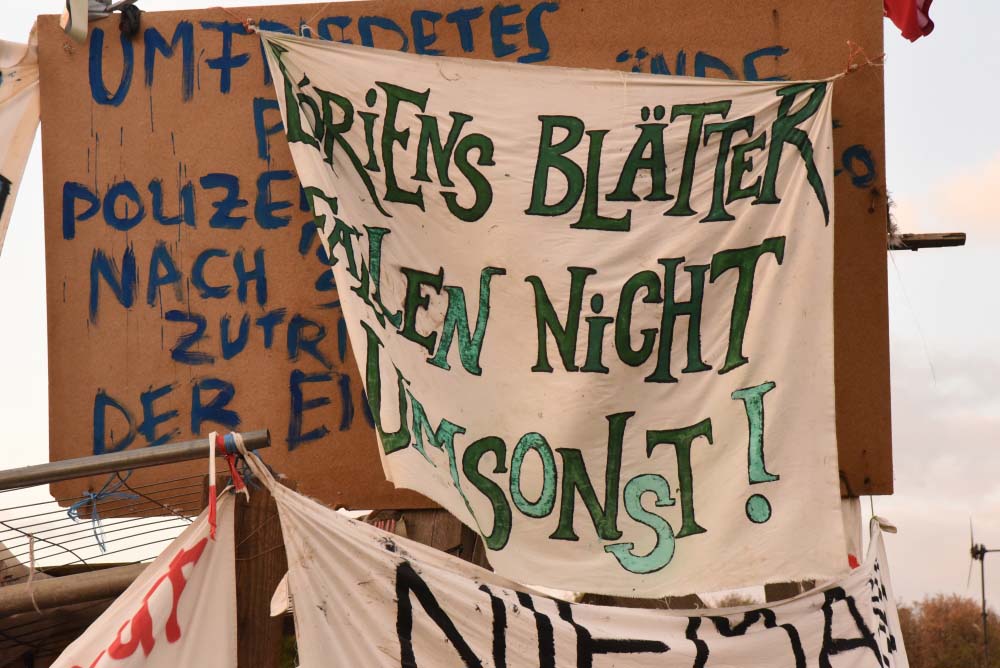 UMFRIEDETES
POLIZEI
NACH
ZUTRI
DER EI
LÓRIENS BLÄTTER
FALLEN NICHT
UMSONST!
NIEMA